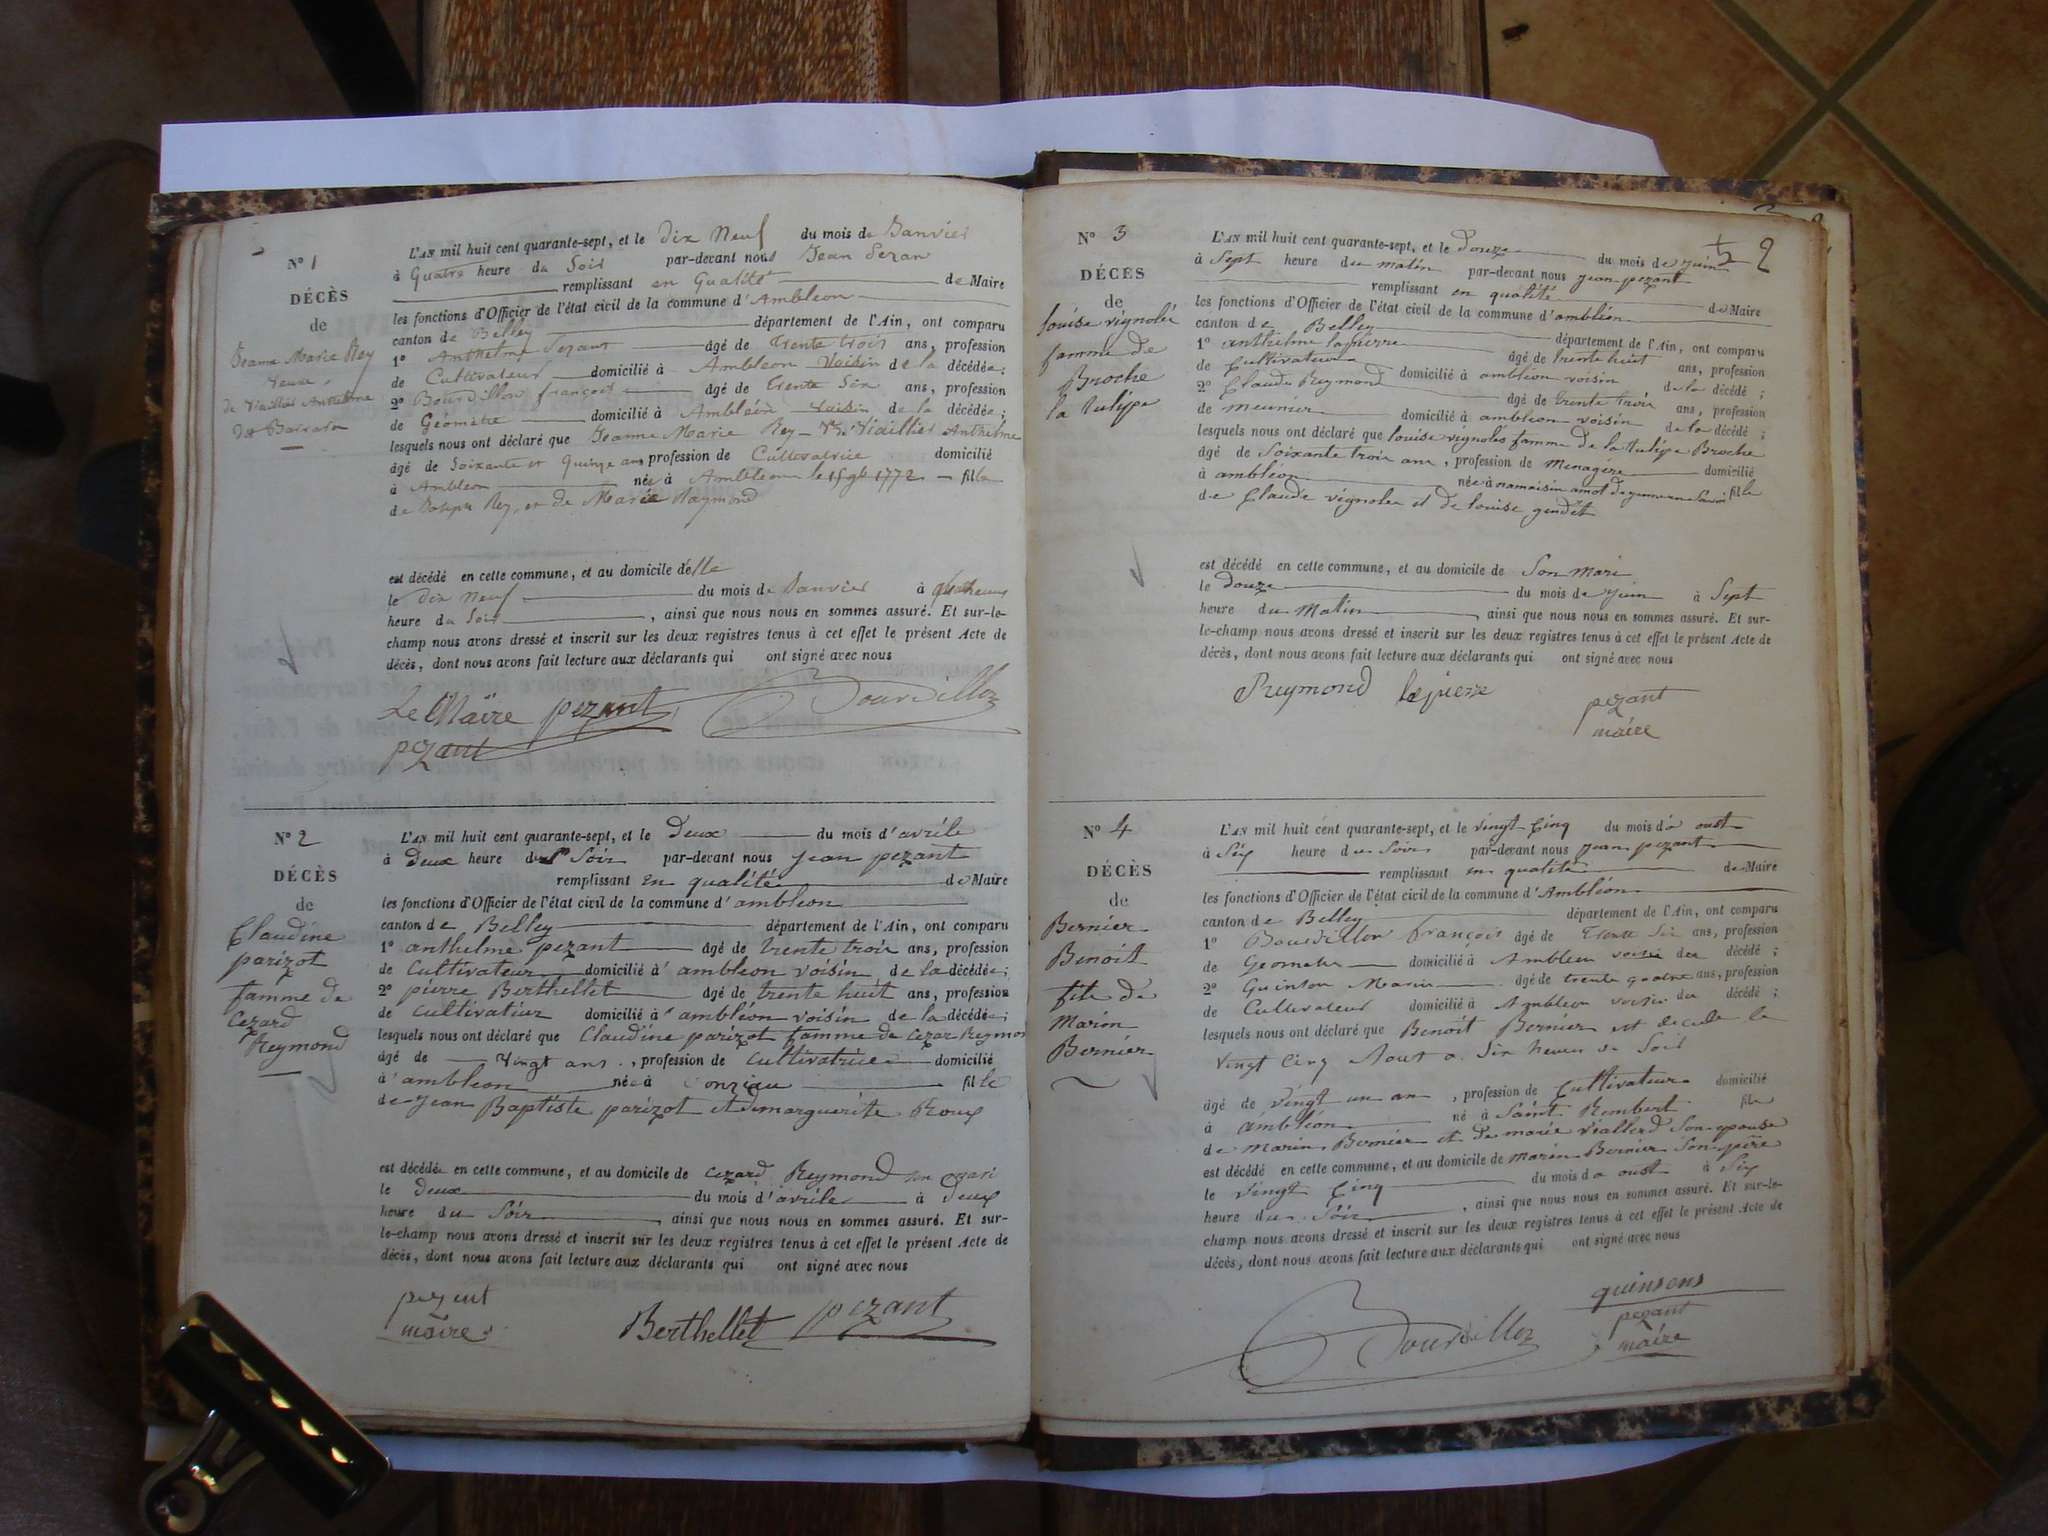 N° 1
DÉCÈS
de
Jeanne Marie Rey
veuve
de Viaillier Anthelme
L'AN mil huit cent quarante-sept, et le dix Neuf du mois de Janvier
à Quatre heure du Soir par-devant nous Jean Pezan
remplissant en Qualité de Maire
les fonctions d'Officier de l'état civil de la commune d'Ambleon
canton de Belley département de l'Ain, ont comparu
1° Anthelme Pezant âgé de trente trois ans, profession
de Cultivateur domicilié à Ambleon Voisin de la décédée;
2° Bourdillon françois âgé de trente Six ans, profession
de Géomètre domicilié à Ambléon Voisin de la décédée;
lesquels nous ont déclaré que Jeanne Marie Rey Vve Viaillier Anthelme
âgé de Soixante et Quinze ans profession de Cultivatrice domicilié
à Ambleon née à Ambléon le 15 9b 1772 fille
de Joseph Rey, et de Marie Raymond
est décédé en cette commune, et au domicile d'elle
le dix neuf du mois de Janvier à quatre heures
heure du Soir, ainsi que nous nous en sommes assuré. Et sur-le-
champ nous avons dressé et inscrit sur les deux registres tenus à cet effet le présent Acte de
décès, dont nous avons fait lecture aux déclarants qui ont signé avec nous
Le Maire pezant Bourdillon
pezant
N° 2
DÉCÈS
de
Claudine
parizot
famme de
Cezard
Reymond
L'AN mil huit cent quarante-sept, et le Deux du mois d'avrile
à Deux heure du Soir par-devant nous jean pezant
remplissant en qualité de Maire
les fonctions d'Officier de l'état civil de la commune d'ambléon
canton de Belley département de l'Ain, ont comparu
1° anthelme pezant âgé de trente trois ans, profession
de Cultivateur domicilié à ambléon voisin de la décédée;
2° pierre Berthellet âgé de trente huit ans, profession
de Cultivateur domicilié à ambléon voisin de la décédée;
lesquels nous ont déclaré que Claudine parizot famme de Cezar Reymon
âgé de vingt ans, profession de Cultivatrice domicilié
à ambléon née à fille
de jean Baptiste parizot et de marguerite Roux
est décédée en cette commune, et au domicile de Cezard Reymond son mari
le deux du mois d'avrile à Deux
heure du Soir, ainsi que nous nous en sommes assuré. Et sur-
le-champ nous avons dressé et inscrit sur les deux registres tenus à cet effet le présent Acte de
décès, dont nous avons fait lecture aux déclarants qui ont signé avec nous
pezent
maire Berthellet pezant
2
N° 3
DÉCÈS
de
Louise vignolé
famme de
Broche
la tulipe
L'AN mil huit cent quarante-sept, et le Douze du mois de juin
à Sept heure du matin par-devant nous jean pezant
remplissant en qualité de Maire
les fonctions d'Officier de l'état civil de la commune d'ambléon
canton de Belley département de l'Ain, ont comparu
1° anthelme lapierre âgé de trente huit ans, profession
de Cultivateur domicilié à ambléon voisin de la décédé;
2° Claude Reymond âgé de trente trois ans, profession
de meunier domicilié à ambléon voisin de la décédé;
lesquels nous ont déclaré que louise vignolés famme de la tulipe Broche
âgé de Soixante trois ans, profession de Menagère domicilié
à ambléon née à fille
de Claude vignolea et de louise
est décédé en cette commune, et au domicile de Son mari
le Douze du mois de juin à Sept
heure du Matin, ainsi que nous nous en sommes assuré. Et sur-
le-champ nous avons dressé et inscrit sur les deux registres tenus à cet effet le présent Acte de
décès, dont nous avons fait lecture aux déclarants qui ont signé avec nous
Reymond lapierre pezant
maire
N° 4
DÉCÈS
de
Bernier
Benoit
fils de
Marin
Bernier
L'AN mil huit cent quarante-sept, et le vingt Cinq du mois d'a oust
à Six heure du Soir par-devant nous jean pezant
remplissant en qualité de Maire
les fonctions d'Officier de l'état civil de la commune d'Ambléon
canton de Belley département de l'Ain, ont comparu
1° Bourdillon françois âgé de Trente Six ans, profession
de Geometre domicilié à Ambleon voisin du décédé;
2° Quinson Marin âgé de trente quatre ans, profession
de Cultivateur domicilié à Ambleon voisin du décédé;
lesquels nous ont déclaré que Benoit Bernier est decedé le
vingt Cinq Aout a Six heures du Soir
âgé de vingt un an, profession de Cultivateur domicilié
à ambléon né à Saint Rembert fils
de Marin Bernier et de marie viallerd Son epouse
est décédé en cette commune, et au domicile de Marin Bernier Son père
le vingt Cinq du mois d'a oust à Six
heure du Soir, ainsi que nous nous en sommes assuré. Et sur-le-
champ nous avons dressé et inscrit sur les deux registres tenus à cet effet le présent Acte de
décès, dont nous avons fait lecture aux déclarants qui ont signé avec nous
quinsons
Bourdillon pezant
maire